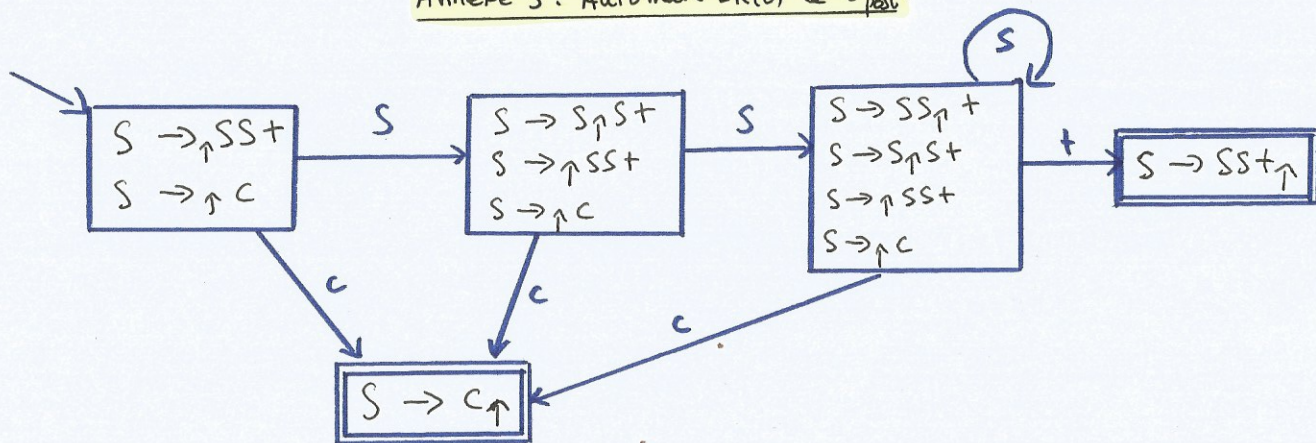 S
S →↑SS+
S →↑ C
S
S → S↑S+
S →↑SS+
S →↑ C
S
S → SS↑ +
S → S↑S+
S →↑SS+
S →↑ C
+
S → SS+↑
C
C
C
S → C↑